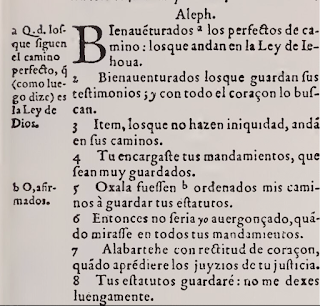 Aleph.
a Q.d. los-
que siguen
el camino
perfecto, q̃
(como lue-
go dize) es
la Ley de
Dios.
BIenauẽturados ª los perfectos de ca-
mino: losque andan en la Ley de Ie-
houa.
2 Bienauenturados losque guardan sus
testimonios; y con todo el coraçon lo bus-
can.
3 Item, losque no hazen iniquidad, andã
en sus caminos.
4 Tu encargaste tus mandamientos, que
sean muy guardados.
b O, afir-
mados.
5 Oxala fuessen ᵇ ordenados mis cami-
nos à guardar tus estatutos.
6 Entonces no seria yo auergonçado, quã-
do mirasse en todos tus mandamientos.
7 Alabartehe con rectitud de coraçon,
quãdo aprẽdiere los juyzios de tu justicia.
8 Tus estatutos guardaré: no me dexes
luengamente.